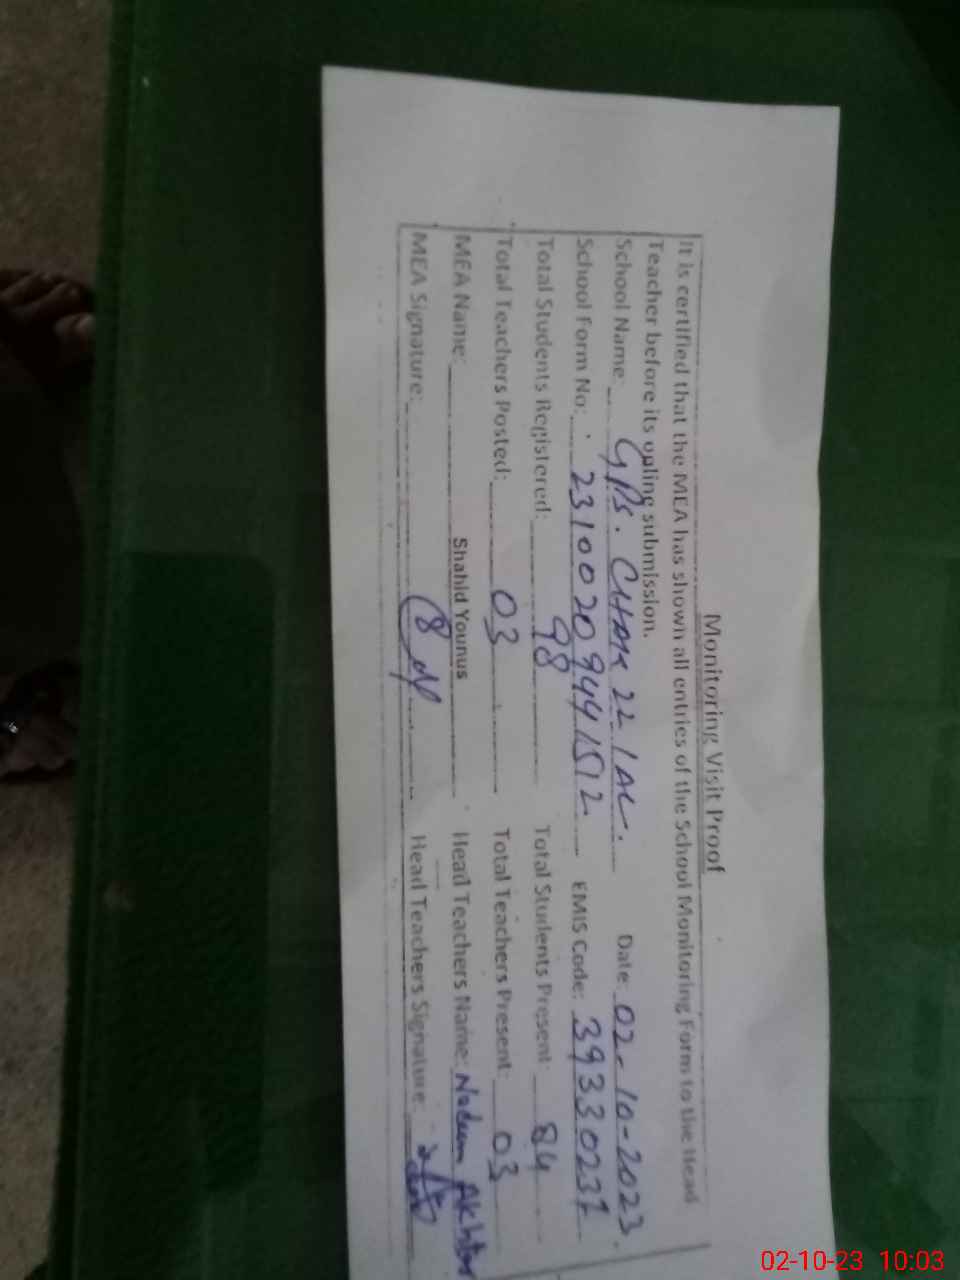 Monitoring Visit Proof
It is certified that the MEA has shown all entries of the School Monitoring Form to the Head
Teacher before its onling submission.
School Name: GPS. CHAK 22 1AL. Date: 02-10-2023.
School Form No: 2310020944512 EMIS Code: 39330231
Total Students Registered: 98 Total Students Present: 84
Total Teachers Posted: 03 Total Teachers Present: 03
MEA Name: Shahid Younus Head Teachers Name: Nadeem Akhtar
MEA Signature: Head Teachers Signature:
02-10-23 10:03